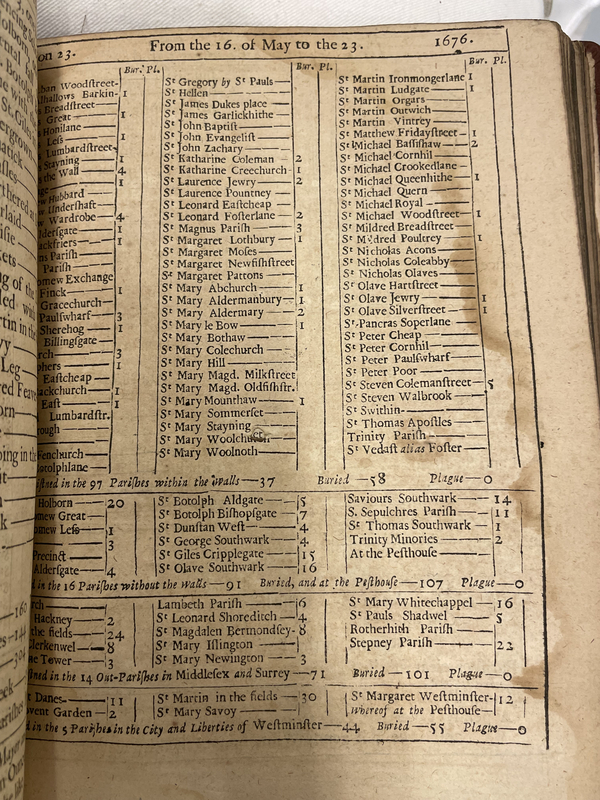 on 23. From the 16. of May to the 23. 1676.
Bur. Pl. Bur. Pl. Bur. Pl.
ban Woodstreet-
lhallows Barkin- 1
Breadstreet
Great 1
Honilane
Less 1
Lumbardstreet
Stayning 1
the Wall 4
ge 1
w Hubbard
w Undershaft
w Wardrobe 4
dersgate 1
ackfriers 1
ns Parish
Parish
omew Exchange
Finck 1
Gracechurch
Paulswharf 3
Sherehog 1
Billingsgate
rch 3
phers 1
Eastcheap
ackchurch 1
East 1
Lumbardstr.
rough
Fenchurch
otolphlane
St Gregory by St Pauls
St Hellen
St James Dukes place
St James Garlickhithe
St John Baptist
St John Evangelist
St John Zachary
St Katharine Coleman 2
St Katharine Creechurch 1
St Laurence Jewry 2
St Laurence Pountney
St Leonard Eastcheap
St Leonard Fosterlane 2
St Magnus Parish 3
St Margaret Lothbury 1
St Margaret Moses
St Margaret Newfishstreet
St Margaret Pattons
St Mary Abchurch 1
St Mary Aldermanbury 1
St Mary Aldermary 2
St Mary le Bow 1
St Mary Bothaw
St Mary Colechurch
St Mary Hill
St Mary Magd. Milkstreet
St Mary Magd. Oldfishstr.
St Mary Mounthaw 1
St Mary Sommerset
St Mary Stayning
St Mary Woolchurch
St Mary Woolnoth
St Martin Ironmongerlane 1
St Martin Ludgate 1
St Martin Orgars
St Martin Outwich
St Martin Vintrey
St Matthew Fridaystreet 1
St Michael Bassishaw 2
St Michael Cornhil
St Michael Crookedlane
St Michael Queenhithe 1
St Michael Quern
St Michael Royal
St Michael Woodstreet 1
St Mildred Breadstreet
St Mildred Poultrey 1
St Nicholas Acons
St Nicholas Coleabby
St Nicholas Olaves
St Olave Hartstreet
St Olave Jewry 1
St Olave Silverstreet 1
St Pancras Soperlane
St Peter Cheap
St Peter Cornhil
St Peter Paulswharf
St Peter Poor
St Steven Colemanstreet 5
St Steven Walbrook
St Swithin
St Thomas Apostles
Trinity Parish
St Vedast alias Foster
stned in the 97 Parishes within the Walls—37 Buried—58 Plague—0
Holborn 20
mew Great
mew Less 1
3
Precinct
Aldersgate 4
St Botolph Aldgate 5
St Botolph Bishopsgate 7
St Dunstan West 4
St George Southwark 4
St Giles Cripplegate 15
St Olave Southwark 16
Saviours Southwark 14
S. Sepulchres Parish 11
St Thomas Southwark 1
Trinity Minories 2
At the Pesthouse
d in the 16 Parishes without the Walls—91 Buried, and at the Pesthouse—107 Plague—0
rch
Hackney 2
the fields 24
lerkenwel 8
he Tower 3
Lambeth Parish 6
St Leonard Shoreditch 4
St Magdalen Bermondsey 8
St Mary Islington
St Mary Newington 3
St Mary Whitechappel 16
St Pauls Shadwel 5
Rotherhith Parish
Stepney Parish 22
stned in the 14 Out-Parishes in Middlesex and Surrey—71 Buried—101 Plague—0
t Danes 11
vent Garden 2
St Martin in the fields 30
St Mary Savoy
St Margaret Westminster 12
whereof at the Pesthouse
d in the 5 Parishes in the City and Liberties of Westminster—44 Buried—55 Plague—0